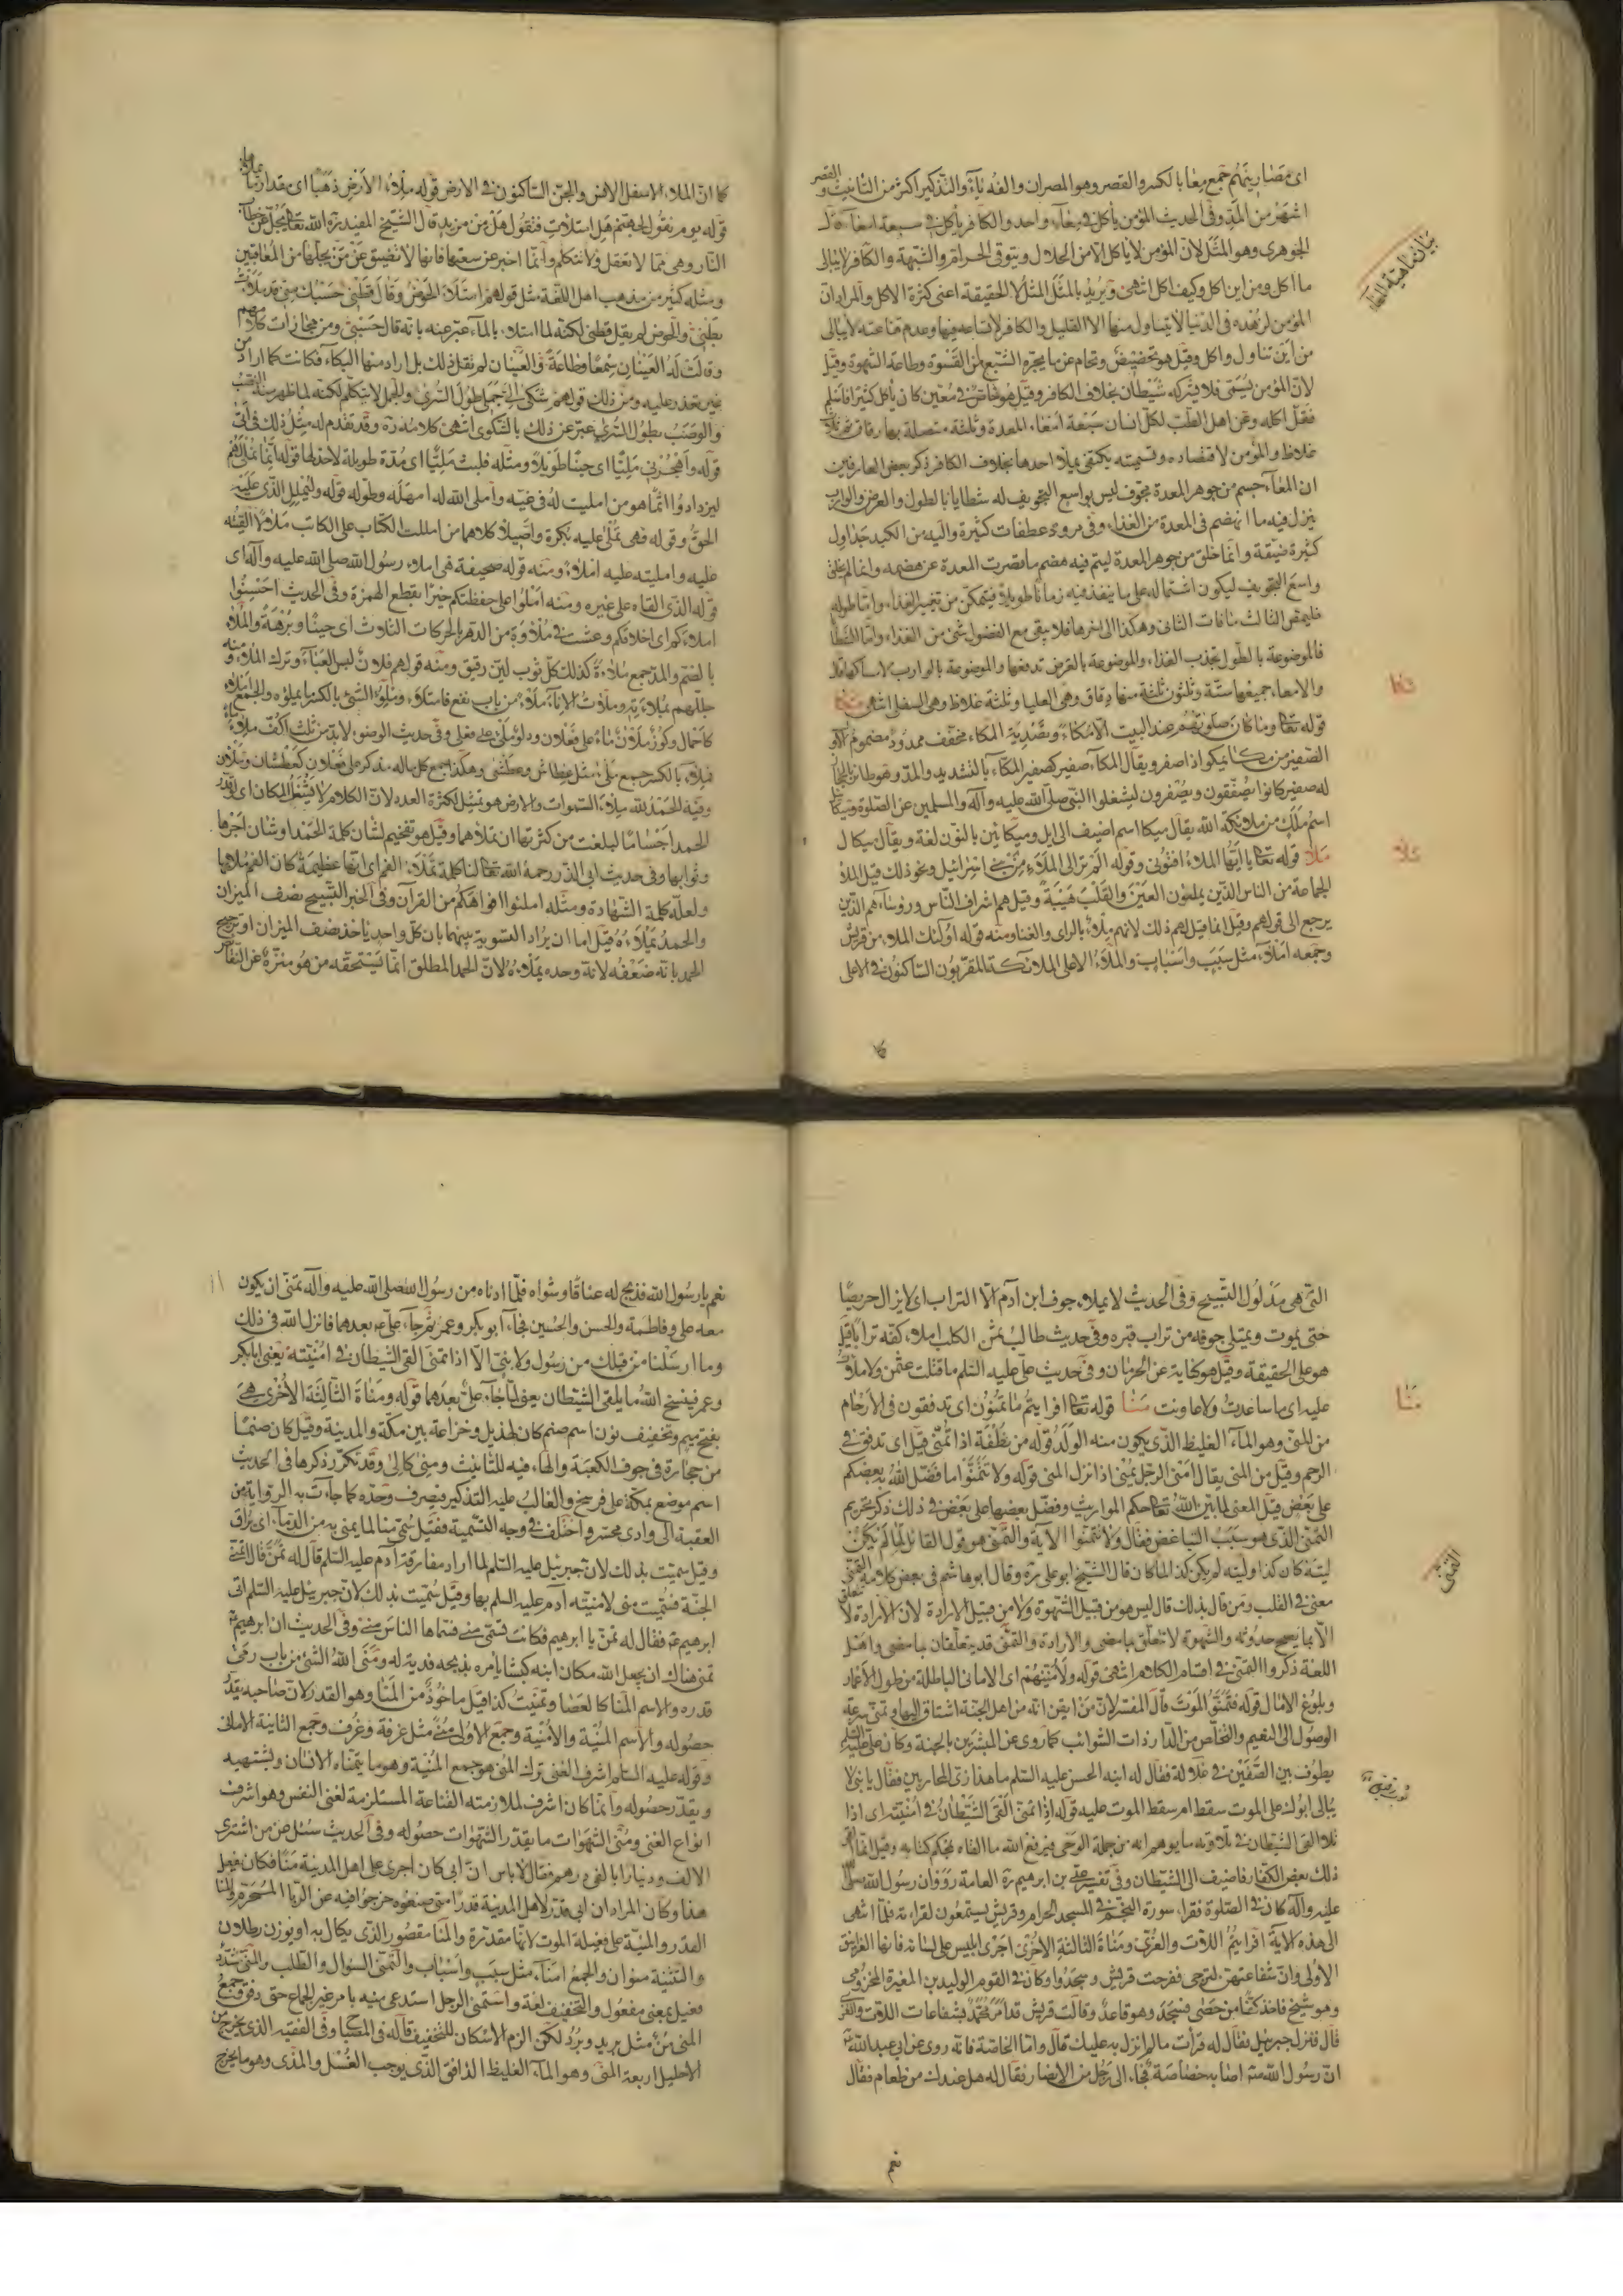 اى مصارينهم جمع معا بالكسر والقصر وهو المصران والفه ياء والتذكير اكثر من التانيث والقصر
اشهر من المد وفى الحديث المؤمن يأكل فى معاء واحد والكافر يأكل فى سبعة امعاء قال
الجوهرى وهو المثل لان المؤمن لا يأكل الا من الحلال ويتوقى الحرام والشبهة والكافر لا يبالى
ما اكل ومن اين اكل وكيف اكل انتهى ويريد بالمثل المثل لا الحقيقة اعنى كثرة الاكل والمراد ان
المؤمن لزهده فى الدنيا لا يتناول منها الا القليل والكافر لاتساعه فيها وعدم قناعته لا يبالى
من اين تناول واكل وقيل هو تخصيص وتحام عن ما يجره الشبع من القسوة وطاعة الشهوة وقيل
لان المؤمن يسمى فلا يشركه شيطان بخلاف الكافر وقيل هو خاص فى معين كان يأكل كثيرا فاسلم
فقل اكله وعن اهل الطب لكل انسان سبعة امعاء المعدة وثلثة متصلة بها رقاق ثم ثلثة
غلاظ والمؤمن لاقتصاده وتسميته يكتفى بملاء احدها بخلاف الكافر ذكر بعض العارفين
ان المعاء جسم من جوهر المعدة مجوف ليس بواسع التجويف له شظايا بالطول والعرض والوارب
ينزل فيه ما انهضم فى المعدة من الغذاء وفى مروره عطفات كثيرة واليه من الكبد جداول
كثيرة ضيقة وانما خلق من جوهر المعدة ليتم فيه هضم ما قصرت المعدة عن هضمه وانما لم يخلق
واسع التجويف ليكون اشتماله على ما ينفذ فيه زمانا طويلا فيتمكن من تغيير الغذاء واما طوله
فليمص الثالث ما فات الثانى وهكذا الى اخرها فلا يبقى مع الفضول شئ من الغذاء واما الشظايا
فالموضوعة بالطول تجذب الغذاء والموضوعة بالعرض تدفعها والموضوعة بالوارب لامساكها
والامعاء جميعها ستة وثلثون ثلثة منها دقاق وهى العليا وثلثة غلاظ وهى السفلى انتهى مكا
قوله تعالى وما كان صلوتهم عند البيت الا مكاء وتصدية المكاء مخفف ممدود مضموم الاول
الصفير من مكا يمكوا اذا صفر ويقال المكاء صفير كصفير المكاء بالتشديد والمد وهو طائر بالحجاز
له صفير كانوا يصفقون ويصفرون ليشغلوا النبى صلى الله عليه وآله والمسلمين عن الصلوة وميكائيل
اسم ملك من ملائكة الله يقال ميكا اسم اضيف الى ايل وميكائين بالنون لغة ويقال ميكال
ملا قوله تعالى يا ايها الملاء افتونى وقوله الم تر الى الملاء من بنى اسرائيل ونحو ذلك قيل الملاء
الجماعة من الناس الذين يملئون العين والقلب هيبة وقيل هم اشراف الناس ورؤساءهم الذين
يرجع الى قولهم وقيل انما قيل لهم ذلك لانهم ملاء بالراى والغنا ومنه قوله اولئك الملاء من قريش
وجمعه املاء مثل سبب واسباب والملاء الاعلى الملائكة المقربون الساكنون فى الاعلى
بيان ماهية المعاء
مكا
ملا
كا
كما ان الملاء الاسفل الانس والجن الساكنون فى الارض قوله ملاء الارض ذهبا اى مقدار ما يملاها
قوله يوم نقول لجهنم هل امتلات فتقول هل من مزيد قال الشيخ المفيد ره الله تعالى يجل عن خطاب
النار وهى مما لا تعقل ولا تتكلم وانما اخبر عن سعتها فانها لا تضيق عن من يحلها من المعاقبين
ومثله كثير من مذهب اهل اللغة مثل قولهم امتلاء الحوض وقال قطنى حسبك منى قد ملات
بطنى والحوض لم يقل قطنى لكنه لما امتلاء بالماء عبر عنه بانه قال حسبى ومن مجازات كلامهم
وقالت له العينان سمعا وطاعة والعينان لم تقل ذلك بل اراد منها البكاء فكانت كما اراد من
غير تعذر عليه ومن ذلك قولهم شكى الى جملى طول السرى والجمل لا يتكلم لكنه لما ظهر منه النصب
والوصب بطول السرى عبر عن ذلك بالشكوى انتهى كلامه ره وقد تقدم له مثل ذلك فى اتى
قوله واهجرنى مليا اى حينا طويلا ومثله فلبث مليا اى مدة طويلة لا حد لها قوله انما نملى لهم
ليزدادوا اثما هو من امليت له فى غيه واملى الله له امهله وطوله قوله وليملل الذى عليه
الحق وقوله فهى تملى عليه بكرة واصيلا كلاهما من امللت الكتاب على الكاتب ملالا القيته
عليه وامليته عليه املاء ومنه قوله صحيفة هى املاء رسول الله صلى الله عليه وآله اى
قوله الذى القاه على غيره ومنه املوا على حفظتكم خيرا بقطع الهمزة وفى الحديث احسنوا
املاءكم اى اخلاقكم وعشت فى ملاوة من الدهر بالحركات الثلاث اى حينا وبرهة والملاء
بالضم والمد جمع ملاءة كذلك كل ثوب لين رقيق ومنه قولهم فلان لبس العباء وترك الملاء ومنه
جللهم بملاءته وملات الاناء ملاء من باب نفع فامتلاء وملؤ الشئ بالكسر ما يملؤه والجمع املاء
كاحمال وكوز ملان ماء على فعلان ودلو ملئى على فعلى وفى حديث الوضوء لابد من ثلث اكف ملاء ماء
فملاء بالكسر جمع ملئى مثل عطاش وعطشى وهكذا جمع كل ماله مذكر على فعلان كعطشان وملان
وفيه الحمد لله ملاء السموات والارض هو تمثيل لكثرة العدد لان الكلام لا يشغل المكان اى لو قدر
الحمد اجساما لبلغت من كثرتها ان تملاهما وقيل هو تفخيم لشان كلمة الحمد او شان اجرها
وثوابها وفى حديث ابى الذر رحمه الله تعالى لنا كلمة تملاء الفم اى انها عظيمة كان الفم ملاء بها
ولعله كلمة الشهادة ومثله املئوا افواهكم من القرآن وفى الخبر التسبيح نصف الميزان
والحمد يملاءه قيل اما ان يراد التسوية بينهما بان كل واحد ياخذ نصف الميزان او ترجيح
الحمد بانه ضعفه لانه وحده يملاءه لان الحمد المطلق انما يستحقه من هو منزه عن النقائص
التى هى مدلول التسبيح وفى الحديث لا يملاء جوف ابن آدم الا التراب اى لا يزال حريصا
حتى يموت ويمتلى جوفه من تراب قبره وفى حديث طالب ثمن الكلب املاء كفه ترابا قيل
هو على الحقيقة وقيل هو كناية عن الحرمان وفى حديث على عليه السلم ما قتلت عثمن ولا ملأت
عليه اى ما ساعدت ولا عاونت منا قوله تعالى افرايتم ما تمنون اى تدفقون فى الارحام
من المنى وهو الماء الغليظ الذى يكون منه الولد قوله من نطفة اذا تمنى قيل اى تدفق فى
الرحم وقيل من المنى يقال امنى الرجل يمنى اذا نزل المنى قوله ولا تتمنوا ما فضل الله به بعضكم
على بعض قيل المعنى لما بين الله تعالى حكم المواريث وفضل بعضها على بعض فى ذلك ذكر تحريم
التمنى الذى هو سبب التباغض فقال ولا تتمنوا الاية والتمنى هو قول القائل لما لم يكن
ليته كان كذا وليته لم يكن كذا لما كان قال الشيخ ابو على ره وقال ابو هاشم فى بعض كلامه التمنى
معنى فى القلب ومن قال بذلك قال ليس هو من قبيل الشهوة ولا من قبيل الارادة لان الارادة لا تتعلق
الا بما يصح حدوثه والشهوة لا تتعلق بما مضى والارادة والتمنى قد يتعلقان بما مضى واهل
اللغة ذكروا التمنى فى اقسام الكلام انتهى قوله ولامنينهم اى الامانى الباطلة من طول الاعمار
وبلوغ الامال قوله فتمنوا الموت قال المفسر لان من ايقن انه من اهل الجنة اشتاق اليها وتمنى سرعة
الوصول الى النعيم والتخلص من الدار ذات الشوائب كما روى عن المبشرين بالجنة وكان على عليه السلم
يطوف بين الصفين فى غلالة فقال له ابنه الحسن عليه السلم ما هذا زى المحاربين فقال يا بنى لا
يبالى ابوك على الموت سقط ام سقط الموت عليه قوله اذا تمنى القى الشيطان فى امنيته اى اذا
تلا القى الشيطان فى تلاوته ما يوهم انه من جملة الوحى فيرفع الله ما القاه بمحكم كتابه وقيل انما
ذلك بعض الكفار فاضيف الى الشيطان وفى تفسير على بن ابرهيم ره العامة رووا ان رسول الله صلى الله
عليه وآله كان فى الصلوة فقراء سورة النجم فى المسجد الحرام وقريش يستمعون لقراءته فلما انتهى
الى هذه الاية افرايتم اللات والعزى ومناة الثالثة الاخرى اجرى ابليس على لسانه فانها الغرانيق
الاولى وان شفاعتهن لترجى ففرحت قريش وسجدوا وكان فى القوم الوليد بن المغيرة المخزومى
وهو شيخ فاخذ كفا من حصى فسجد وهو قاعد وقالت قريش قد اقر محمد بشفاعات اللات والعزى
قال فنزل جبريل فقال له قرات ما لم انزل به عليك قال واما الخاصة فانه روى عن ابى عبد الله
ان رسول الله اصابه خصاصة فجاء الى رجل من الانصار فقال له هل عندك من طعام فقال
منا
التمنى
نعم
نعم يا رسول الله فذبح له عناقا وشواه فلما ادناه من رسول الله صلى الله عليه وآله تمنى ان يكون
معه على وفاطمة والحسن والحسين فجاء ابو بكر وعمر ثم جاء على بعدهما فانزل الله فى ذلك
وما ارسلنا من قبلك من رسول ولا نبى الا اذا تمنى القى الشيطان فى امنيته يعنى ابا بكر
وعمر فينسخ الله ما يلقى الشيطان يعنى لما جاء على بعدهما قوله ومناة الثالثة الاخرى هى
بفتح ميم وتخفيف نون اسم صنم كان لهذيل وخزاعة بين مكة والمدينة وقيل كان صنما
من حجارة فى جوف الكعبة والهاء فيه للتانيث ومنى كالى وقد تكرر ذكرها فى الحديث
اسم موضع بمكة على فرسخ والغالب عليه التذكير فيصرف وحده كما جاءت به الرواية من
العقبة الى وادى محسر واختلف فى وجه التسمية فقيل سمى منا لما يمنى به من الدماء اى يراق
وقيل سميت بذلك لان جبريل عليه السلم لما اراد مفارقة آدم عليه السلم قال له تمن قال اتمنى
الجنة فسميت منى لامنيته آدم عليه السلم بها وقيل سميت بذلك لان جبريل عليه السلم اتى
ابرهيم فقال له تمن يا ابرهيم فكانت تسمى منى فسماها الناس منى وفى الحديث ان ابرهيم
تمنى هناك ان يجعل الله مكان ابنه كبشا يأمره بذبحه فدية له ومنى الله الشئ من باب رمى
قدره والاسم المنا كالعصا وتمنيت كذا قيل ماخوذ من المنا وهو القدر لان صاحبه يقدر
حصوله والاسم المنية والامنية وجمع الاولى منى مثل غرفة وغرف وجمع الثانية الامانى
وقوله عليه السلم اشرف الغنى ترك المنى هو جمع المنية وهو ما يتمناه الانسان ويشتهيه
ويقدر حصوله وانما كان اشرف لملازمته القناعة المستلزمة لغنى النفس وهو اشرف
انواع الغنى ومنى الشهوات ما يقدر الشهوات حصوله وفى الحديث سئل عن من اشترى
الالف ودينارا بالفى درهم فقال لا باس ان ابى كان اجرى على اهل المدينة منا فكان يفعل
هذا وكان المراد ان ابى قدر لاهل المدينة قدرا متى صنعوه خرجوا فيه عن الربا المحرمة والمنا
القدر والمنية على فعيلة الموت لانها مقدرة والمنا مقصور الذى يكال به او يوزن رطلان
والتثنية منوان والجمع امناء مثل سبب واسباب والتمنى السؤال والطلب والمنى مشدد
فعيل بمعنى مفعول والتخفيف لغة واستمنى الرجل استدعى منيه بامر غير الجماع حتى دفق وجمع
المنى منى مثل بريد وبرد لكن الزم الاسكان للتخفيف قاله فى المصباح وفى الفقيه الذى يخرج من
الاحليل اربعة المنى وهو الماء الغليظ الدافق الذى يوجب الغسل والمذى وهو ما يخرج